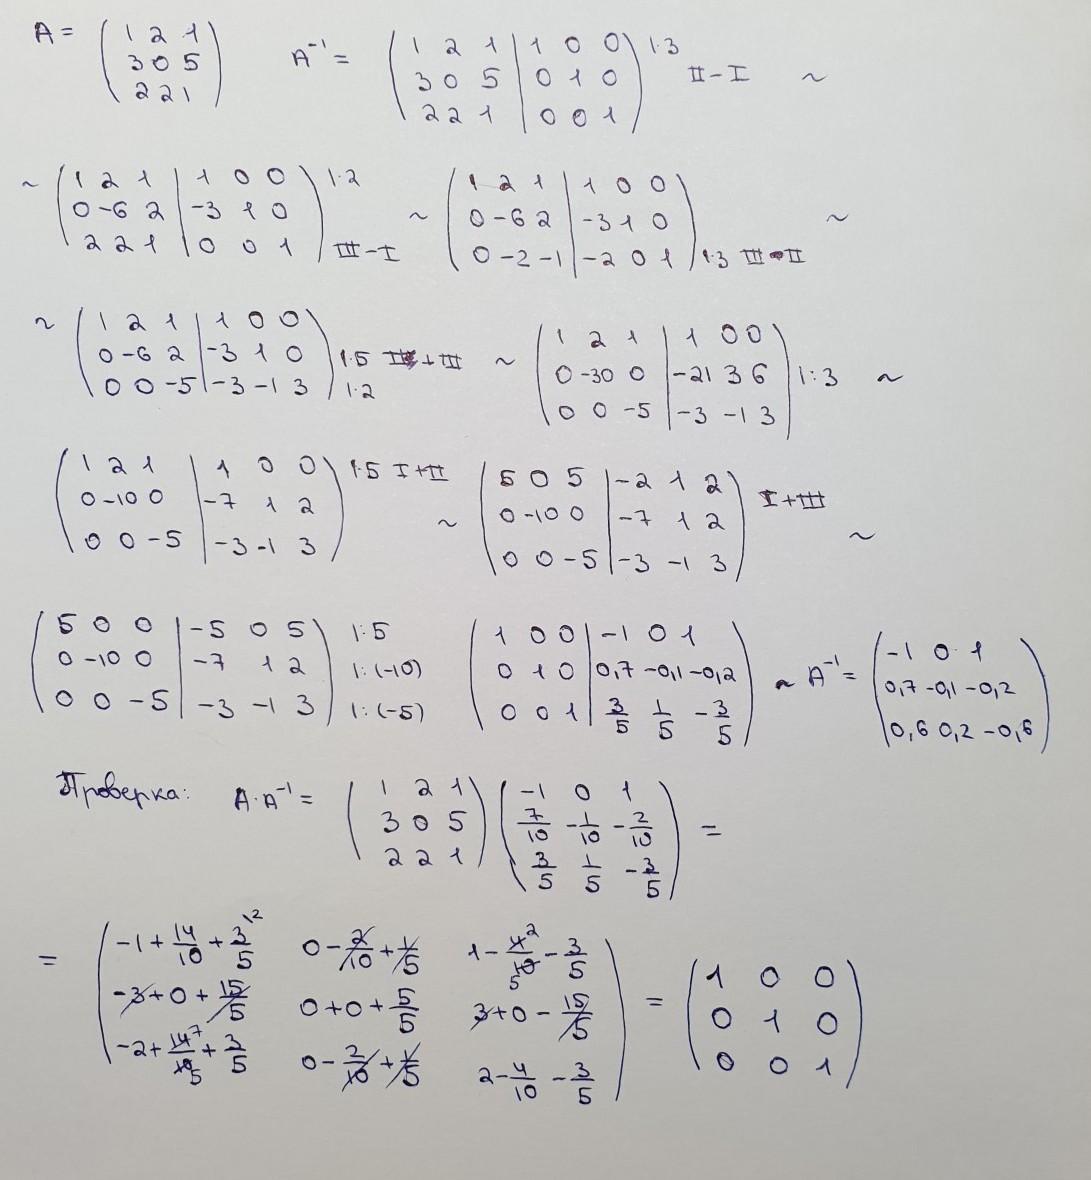 A = ( 1 2 1 ; 3 0 5 ; 2 2 1 ) A⁻¹ = ( 1 2 1 | 1 0 0 ; 3 0 5 | 0 1 0 ; 2 2 1 | 0 0 1 ) |·3 II - I ~
~ ( 1 2 1 | 1 0 0 ; 0 -6 2 | -3 1 0 ; 2 2 1 | 0 0 1 ) |·2 III - I ~ ( 1 2 1 | 1 0 0 ; 0 -6 2 | -3 1 0 ; 0 -2 -1 | -2 0 1 ) |·3 III - II ~
~ ( 1 2 1 | 1 0 0 ; 0 -6 2 | -3 1 0 ; 0 0 -5 | -3 -1 3 ) |·5 II + III |·2 ~ ( 1 2 1 | 1 0 0 ; 0 -30 0 | -21 3 6 ; 0 0 -5 | -3 -1 3 ) |:3 ~
( 1 2 1 | 1 0 0 ; 0 -10 0 | -7 1 2 ; 0 0 -5 | -3 -1 3 ) |·5 I + II ~ ( 5 0 5 | -2 1 2 ; 0 -10 0 | -7 1 2 ; 0 0 -5 | -3 -1 3 ) I + III ~
( 5 0 0 | -5 0 5 ; 0 -10 0 | -7 1 2 ; 0 0 -5 | -3 -1 3 ) |:5 |:(-10) |:(-5) ( 1 0 0 | -1 0 1 ; 0 1 0 | 0,7 -0,1 -0,2 ; 0 0 1 | 3/5 1/5 -3/5 ) ~ A⁻¹ = ( -1 0 1 ; 0,7 -0,1 -0,2 ; 0,6 0,2 -0,6 )
Проверка: A · A⁻¹ = ( 1 2 1 ; 3 0 5 ; 2 2 1 ) ( -1 0 1 ; 7/10 -1/10 -2/10 ; 3/5 1/5 -3/5 ) =
= ( -1 + 14/10 + 3/5 0 - 2/10 + 1/5 1 - 4/10 - 3/5 ; -3 + 0 + 15/5 0 + 0 + 5/5 3 + 0 - 15/5 ; -2 + 14/10 + 3/5 0 - 2/10 + 1/5 2 - 4/10 - 3/5 ) = ( 1 0 0 ; 0 1 0 ; 0 0 1 )